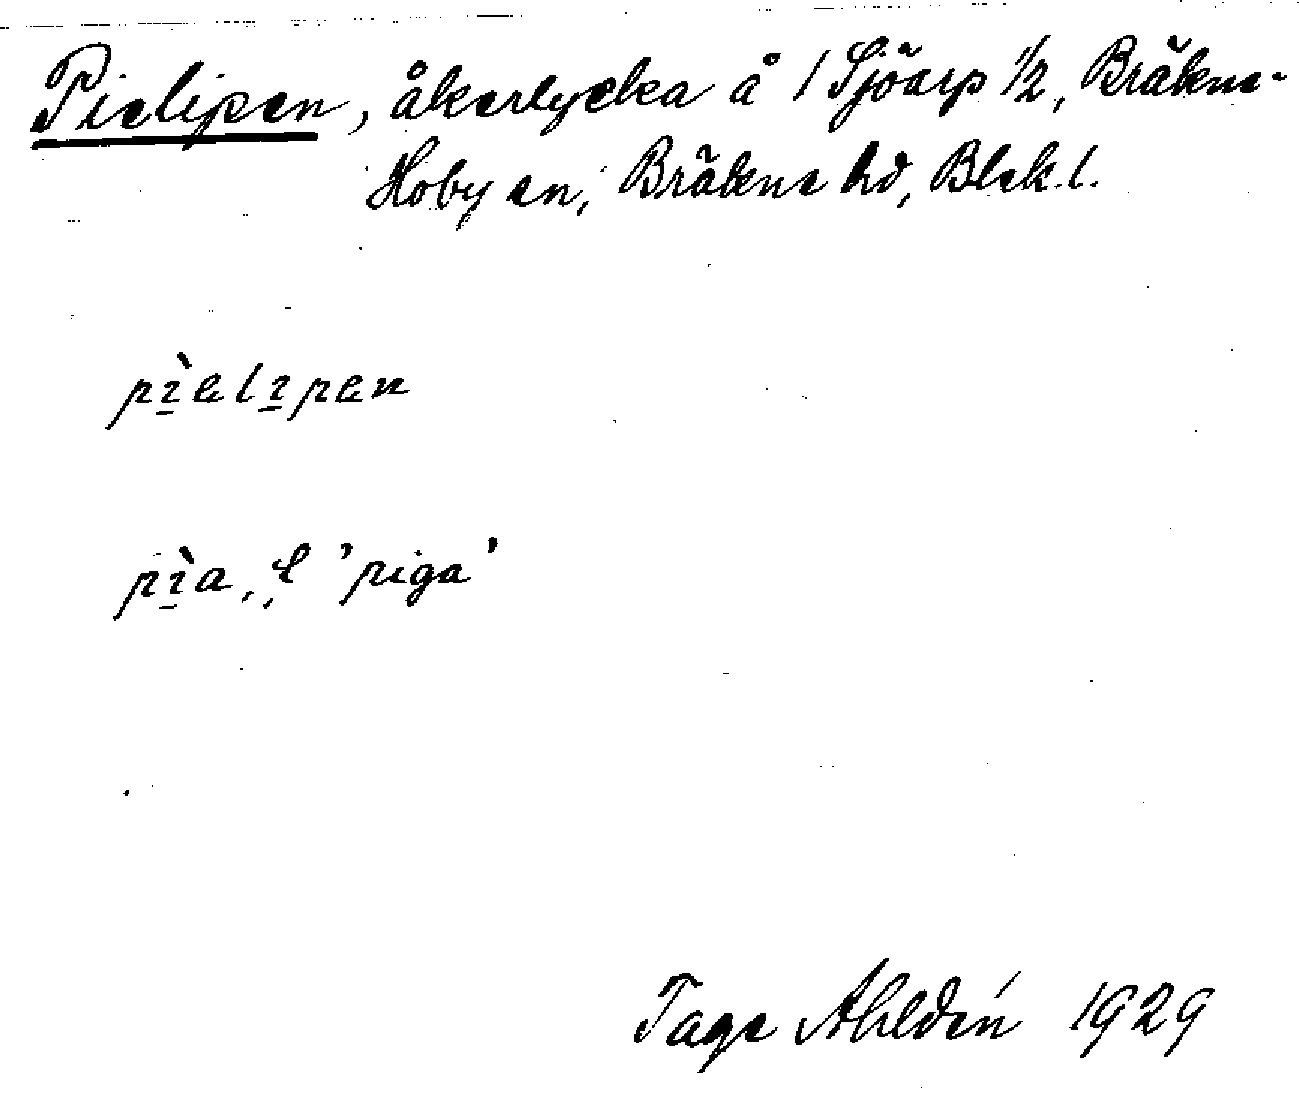 Pielipen, åkerlycka å 1 Sjöarp 1/2, Bräkne-
Hoby sn, Bräkne hd, Blek. l.
pì̱elı̱pen
pì̱a, f. 'piga'
Tage Ahldén 1929